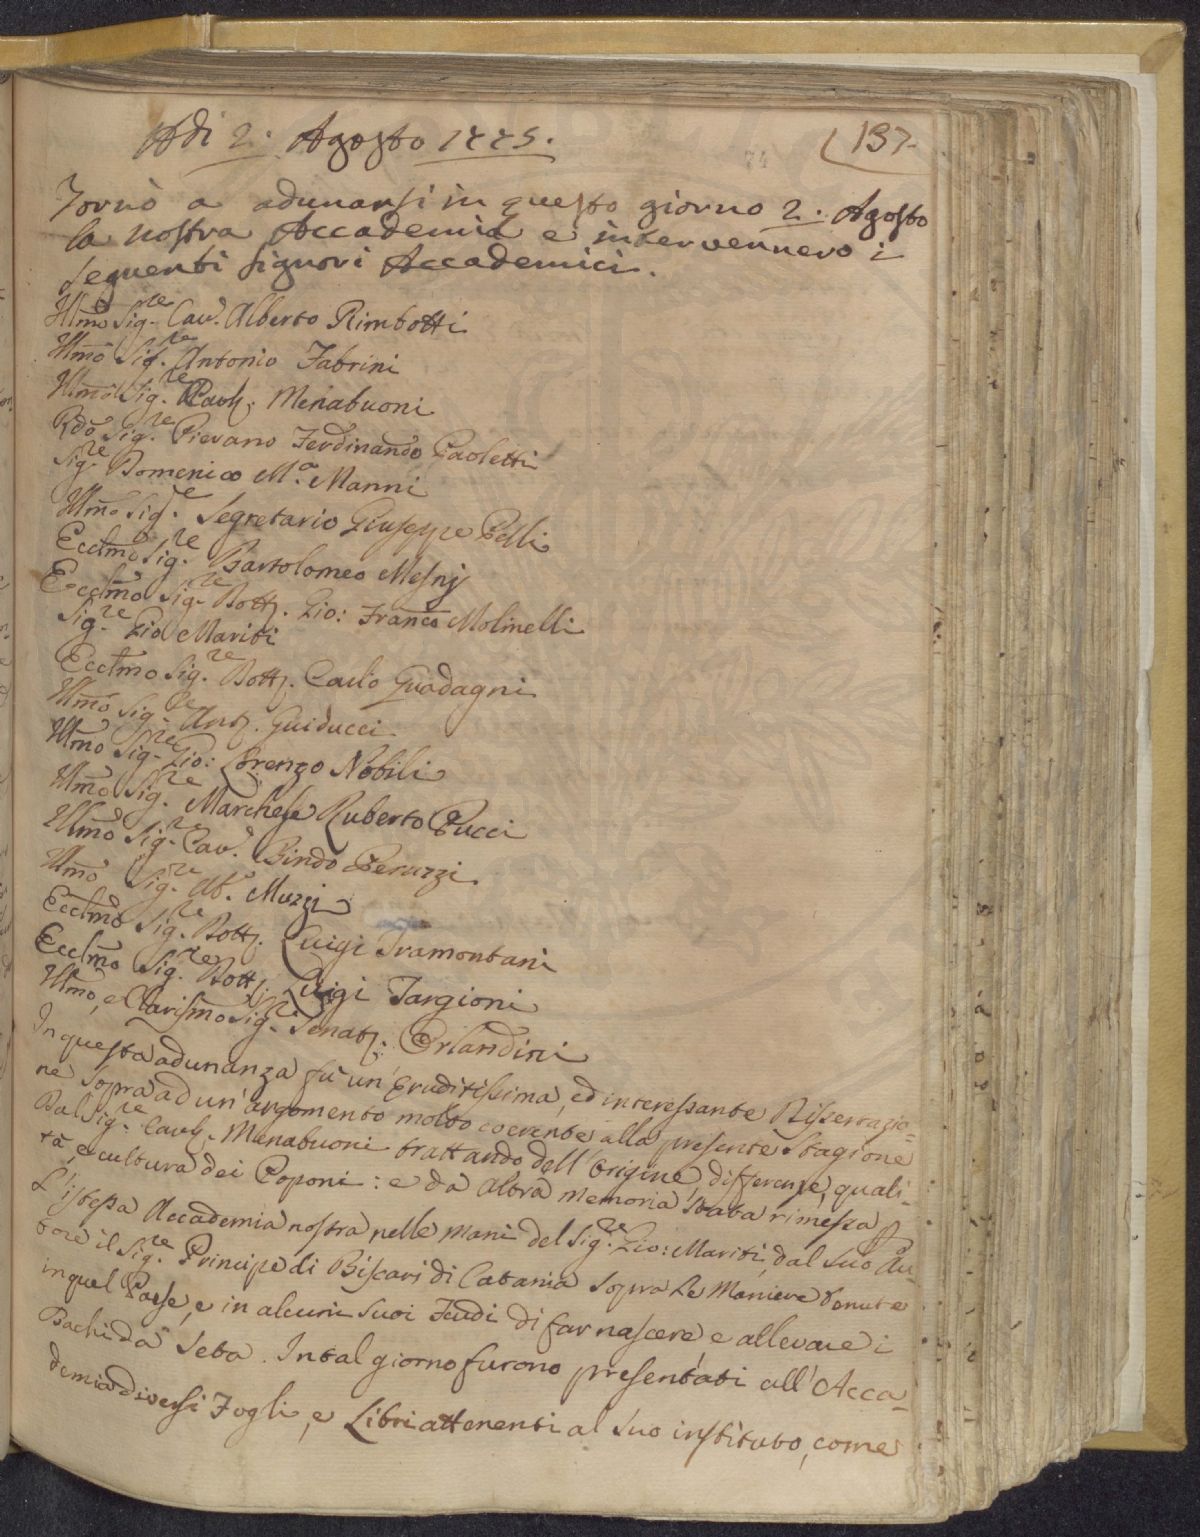 Adi 2. Agosto 1775.
137.
74
Tornò a adunarsi in questo giorno 2. Agosto
la nostra Accademia e intervennero i
seguenti signori Accademici.
Illmo Sig.re Cav. Alberto Rimbotti
Illmo Sig.re Antonio Fabrini
Illmo Sig.re Menabuoni
Rdo Sig.re Pievano Ferdinando Paoletti
Sig.re Domenico M.a Manni
Illmo Sig.re Segretario Giuseppe Pelli
Ecclmo Sig.re Bartolomeo Mesnÿ
Ecclmo Sig.re Dott. Gio: Franco Molinelli
Sig.re Gio Mariti
Ecclmo Sig.re Dott. Carlo Guadagni
Illmo Sig.re Ant. Guiducci
Illmo Sig.re Gio: Lorenzo Nobili
Illmo Sig.re Marchese Ruberto Pucci
Illmo Sig.re Cav. Bindo Peruzzi
Illmo Sig.re Ab. Muzzi
Ecclmo Sig.re Dott. Luigi Tramontani
Ecclmo Sig.re Dott. Luigi Targioni
Illmo, e Clarismo Sig.re Senat. Orlandini
In questa adunanza fù un'eruditissima, ed interessante Dissertazio=
ne sopra ad un'argomento molto coerente alla presente Stagione
Dal Sig.re Cav. Menabuoni trattando dell'origine, differenze, quali=
tà, e cultura dei Poponi: e da altra memoria stata rimessa
L'istessa Accademia nostra nelle mani del Sig.re Gio: Mariti, dal suo Au=
tore il Sig.re Principe di Biscari di Catania sopra Le Maniere tenute
in quel Paese, e in alcuni suoi Feudi di far nascere, e allevare i
Bachi da Seta. In tal giorno furono presentati all'Acca=
demia diversi Fogli, e Libri attenenti al suo instituto, come